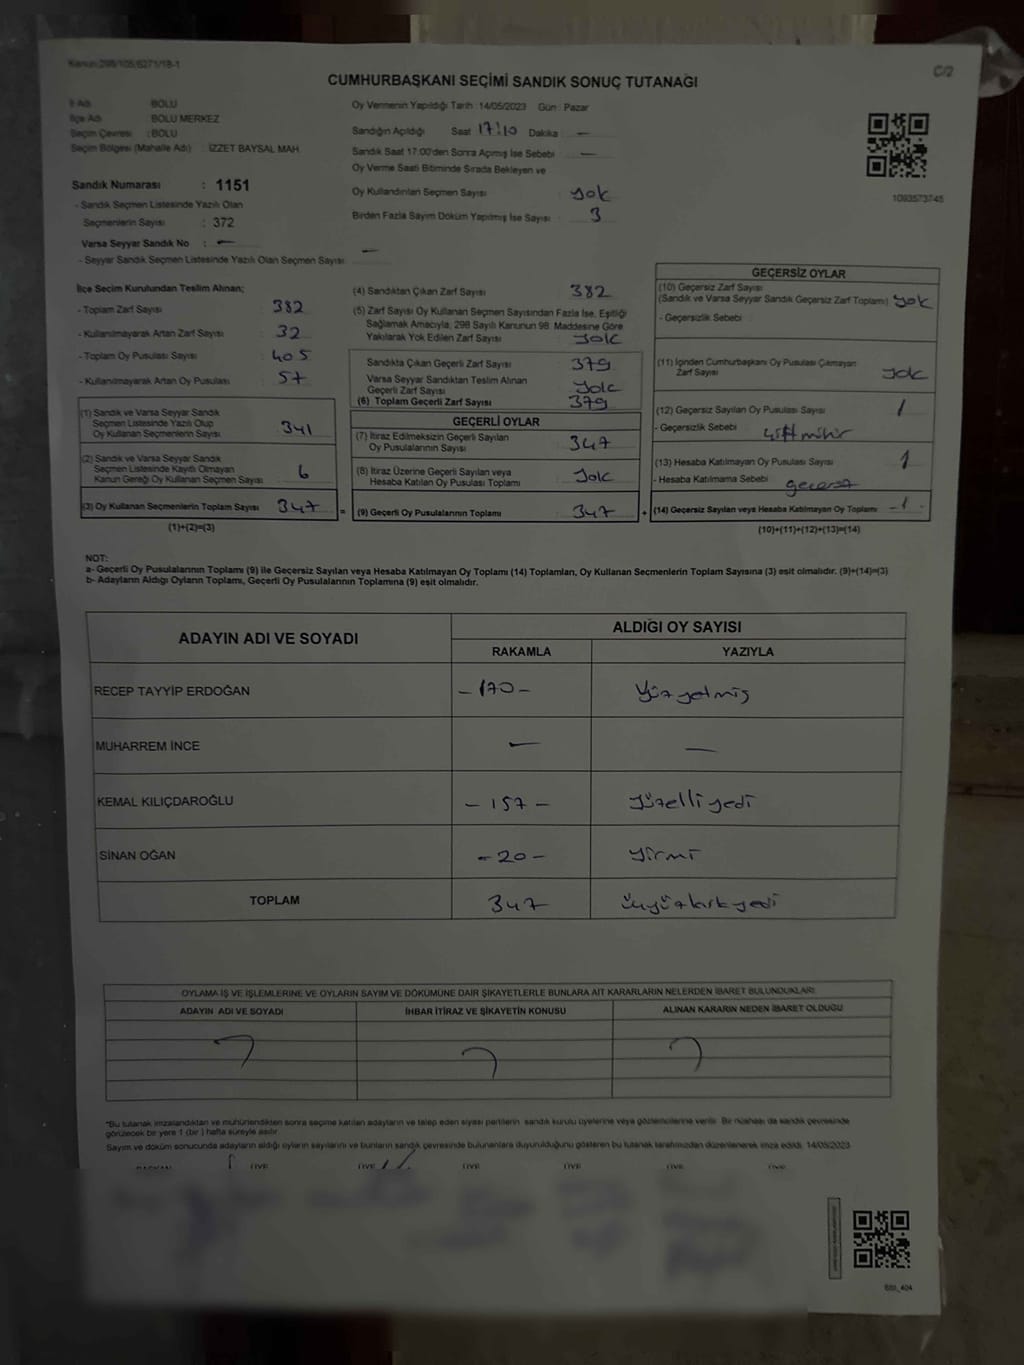 Kanun:298/105,6271/18-1
C/2
CUMHURBAŞKANI SEÇİMİ SANDIK SONUÇ TUTANAĞI
İl Adı : BOLU
İlçe Adı : BOLU MERKEZ
Seçim Çevresi : BOLU
Seçim Bölgesi (Mahalle Adı) : İZZET BAYSAL MAH.
Sandık Numarası : 1151
- Sandık Seçmen Listesinde Yazılı Olan
Seçmenlerin Sayısı : 372
Varsa Seyyar Sandık No : —
- Seyyar Sandık Seçmen Listesinde Yazılı Olan Seçmen Sayısı: —
Oy Vermenin Yapıldığı Tarih : 14/05/2023 Gün : Pazar
Sandığın Açıldığı Saat 17:10 Dakika : —
Sandık Saat 17:00'den Sonra Açımış İse Sebebi : —
Oy Verme Saati Bitiminde Sırada Bekleyen ve
Oy Kullandırılan Seçmen Sayısı : yok
Birden Fazla Sayım Döküm Yapılmış İse Sayısı : 3
1093573745
İlçe Seçim Kurulundan Teslim Alınan;
- Toplam Zarf Sayısı : 382
- Kullanılmayarak Artan Zarf Sayısı : 32
- Toplam Oy Pusulası Sayısı : 405
- Kullanılmayarak Artan Oy Pusulası : 57
(1) Sandık ve Varsa Seyyar Sandık
Seçmen Listesinde Yazılı Olup
Oy Kullanan Seçmenlerin Sayısı : 341
(2) Sandık ve Varsa Seyyar Sandık
Seçmen Listesinde Kayıtlı Olmayan
Kanun Gereği Oy Kullanan Seçmen Sayısı : 6
(3) Oy Kullanan Seçmenlerin Toplam Sayısı : 347
(1)+(2)=(3)
(4) Sandıktan Çıkan Zarf Sayısı : 382
(5) Zarf Sayısı Oy Kullanan Seçmen Sayısından Fazla İse, Eşitliği
Sağlamak Amacıyla, 298 Sayılı Kanunun 98. Maddesine Göre
Yakılarak Yok Edilen Zarf Sayısı : yok
Sandıkta Çıkan Geçerli Zarf Sayısı : 379
Varsa Seyyar Sandıktan Teslim Alınan
Geçerli Zarf Sayısı : yok
(6) Toplam Geçerli Zarf Sayısı : 379
GEÇERLİ OYLAR
(7) İtiraz Edilmeksizin Geçerli Sayılan
Oy Pusulalarının Sayısı : 347
(8) İtiraz Üzerine Geçerli Sayılan veya
Hesaba Katılan Oy Pusulası Toplamı : yok
= (9) Geçerli Oy Pusulalarının Toplamı : 347 +
GEÇERSİZ OYLAR
(10) Geçersiz Zarf Sayısı
(Sandık ve Varsa Seyyar Sandık Geçersiz Zarf Toplamı) : yok
- Geçersizlik Sebebi :
(11) İçinden Cumhurbaşkanı Oy Pusulası Çıkmayan
Zarf Sayısı : yok
(12) Geçersiz Sayılan Oy Pusulası Sayısı : 1
- Geçersizlik Sebebi : çift mühür
(13) Hesaba Katılmayan Oy Pusulası Sayısı : 1
- Hesaba Katılmama Sebebi : geçersiz
(14) Geçersiz Sayılan veya Hesaba Katılmayan Oy Toplamı : -1
(10)+(11)+(12)+(13)=(14)
NOT:
a- Geçerli Oy Pusulalarının Toplamı (9) ile Geçersiz Sayılan veya Hesaba Katılmayan Oy Toplamı (14) Toplamları, Oy Kullanan Seçmenlerin Toplam Sayısına (3) eşit olmalıdır. (9)+(14)=(3)
b- Adayların Aldığı Oyların Toplamı, Geçerli Oy Pusulalarının Toplamına (9) eşit olmalıdır.
ADAYIN ADI VE SOYADI
ALDIĞI OY SAYISI
RAKAMLA YAZIYLA
RECEP TAYYİP ERDOĞAN - 170 - Yüzyetmiş
MUHARREM İNCE — —
KEMAL KILIÇDAROĞLU - 157 - yüzelliyedi
SİNAN OĞAN - 20 - yirmi
TOPLAM 347 üçyüzkırkyedi
OYLAMA İŞ VE İŞLEMLERİNE VE OYLARIN SAYIM VE DÖKÜMÜNE DAİR ŞİKAYETLERLE BUNLARA AİT KARARLARIN NELERDEN İBARET BULUNDUKLARI
ADAYIN ADI VE SOYADI İHBAR İTİRAZ VE ŞİKAYETİN KONUSU ALINAN KARARIN NEDEN İBARET OLDUĞU
*Bu tutanak imzalandıktan ve mühürlendikten sonra seçime katılan adayların ve talep eden siyasi partilerin sandık kurulu üyelerine veya gözlemcilerine verilir. Bir nüshası da sandık çevresinde
görülecek bir yere 1 (bir ) hafta süreyle asılır.
Sayım ve döküm sonucunda adayların aldığı oyların sayılarını ve bunların sandık çevresinde bulunanlara duyurulduğunu gösteren bu tutanak tarafımızdan düzenlenerek imza edildi. 14/05/2023
BAŞKAN ÜYE ÜYE ÜYE ÜYE ÜYE ÜYE